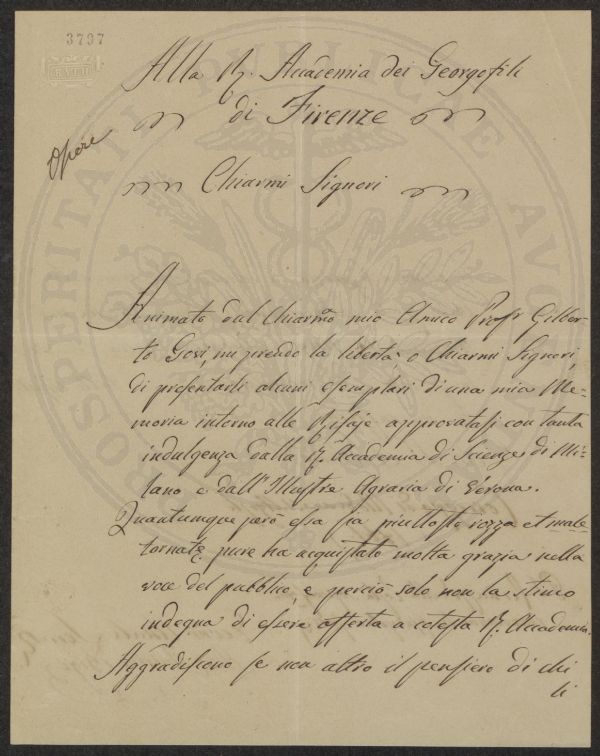 3797
Alla R. Accademia dei Georgofili
di Firenze
Opere
Chiarmi Signori
Animato dal Chiarmo mio Amico Profr Gilber-
to Govi, mi prendo la libertà, o Chiarmi Signori,
di presentarli alcuni esemplari di una mia Me-
moria intorno alle Risaje approvatasi con tanta
indulgenza dalla R. Accademia di Scienze di Mi-
lano e dall'Illustre Agraria di Verona.
Quantunque però essa sia piuttosto rozza et male
tornata, pure ha acquistato molta grazia nella
voce del pubblico, e perciò solo non la stimo
indegna di essere offerta a cotesta R. Accademia.
Aggradiscono se non altro il pensiero di chi
li
PROSPERITATI PUBLICAE AU